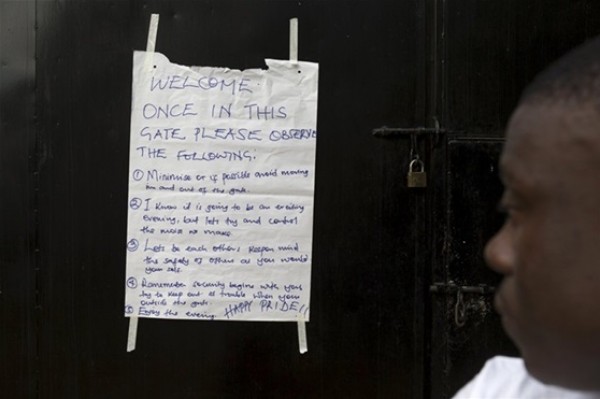 WELCOME
ONCE IN THIS
GATE PLEASE OBSERVE
THE FOLLOWING:
① Minimise or if possible avoid moving
in and out of the gate.
② I know it is going to be an exciting
evening, but lets try and control
the noise
③ Lets be each others keeper mind
the safety of others as you would
your self.
④ Remember security begins with you
try to keep out of trouble when your
outside the gate.
⑤ Enjoy the evening HAPPY PRIDE!!